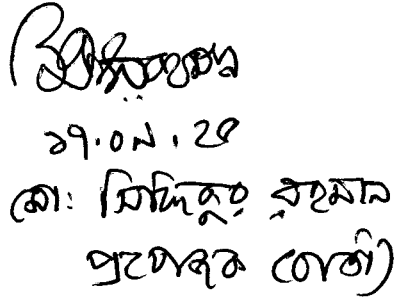 ১৭.০৯.২৫
মো: সিদ্দিকুর রহমান
প্রযোজক (বার্তা)